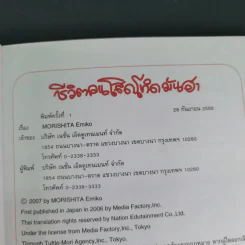 ชีวิตคนโสดกับมันฮา
พิมพ์ครั้งที่ 1
26 กันยายน 2550
เรื่อง MORISHITA Emiko
เจ้าของ บริษัท เนชั่น เอ็ดดูเทนเมนท์ จำกัด
1854 ถนนบางนา-ตราด แขวงบางนา เขตบางนา กรุงเทพฯ 10260
โทรศัพท์ 0-2338-3333
ผู้พิมพ์ บริษัท เนชั่น เอ็ดดูเทนเมนท์ จำกัด
1854 ถนนบางนา-ตราด แขวงบางนา เขตบางนา กรุงเทพฯ 10260
โทรศัพท์ 0-2338-3333
© 2007 by MORISHITA Emiko
First published in Japan in 2006 by Media Factory,Inc.
Thai translation rights reserved by Nation Edutainment Co.,Ltd.
Under the license from Media Factory,Inc., Tokyo
Through Tuttle-Mori Agency,Inc., Tokyo.